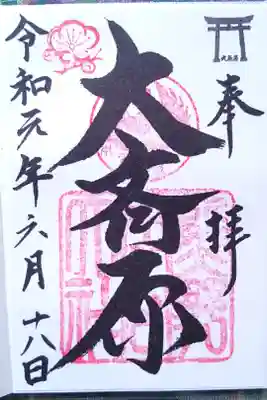 奉拝
大斎原
令和元年六月十八日